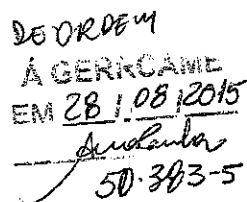 DE ORDEM
À GERRCAME
EM 28 / 08 / 2015
50.383-5